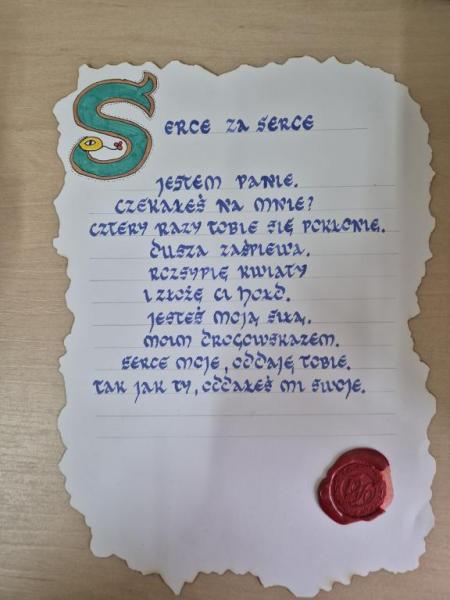 Serce za serce
Jestem Panie.
Czekałeś na mnie?
Cztery razy Tobie się pokłonię.
Dusza zaśpiewa.
Rozsypię kwiaty
i złożę Ci hołd.
Jesteś moją siłą.
Moim drogowskazem.
Serce moje, oddaję Tobie.
Tak jak Ty, oddałeś mi swoje.